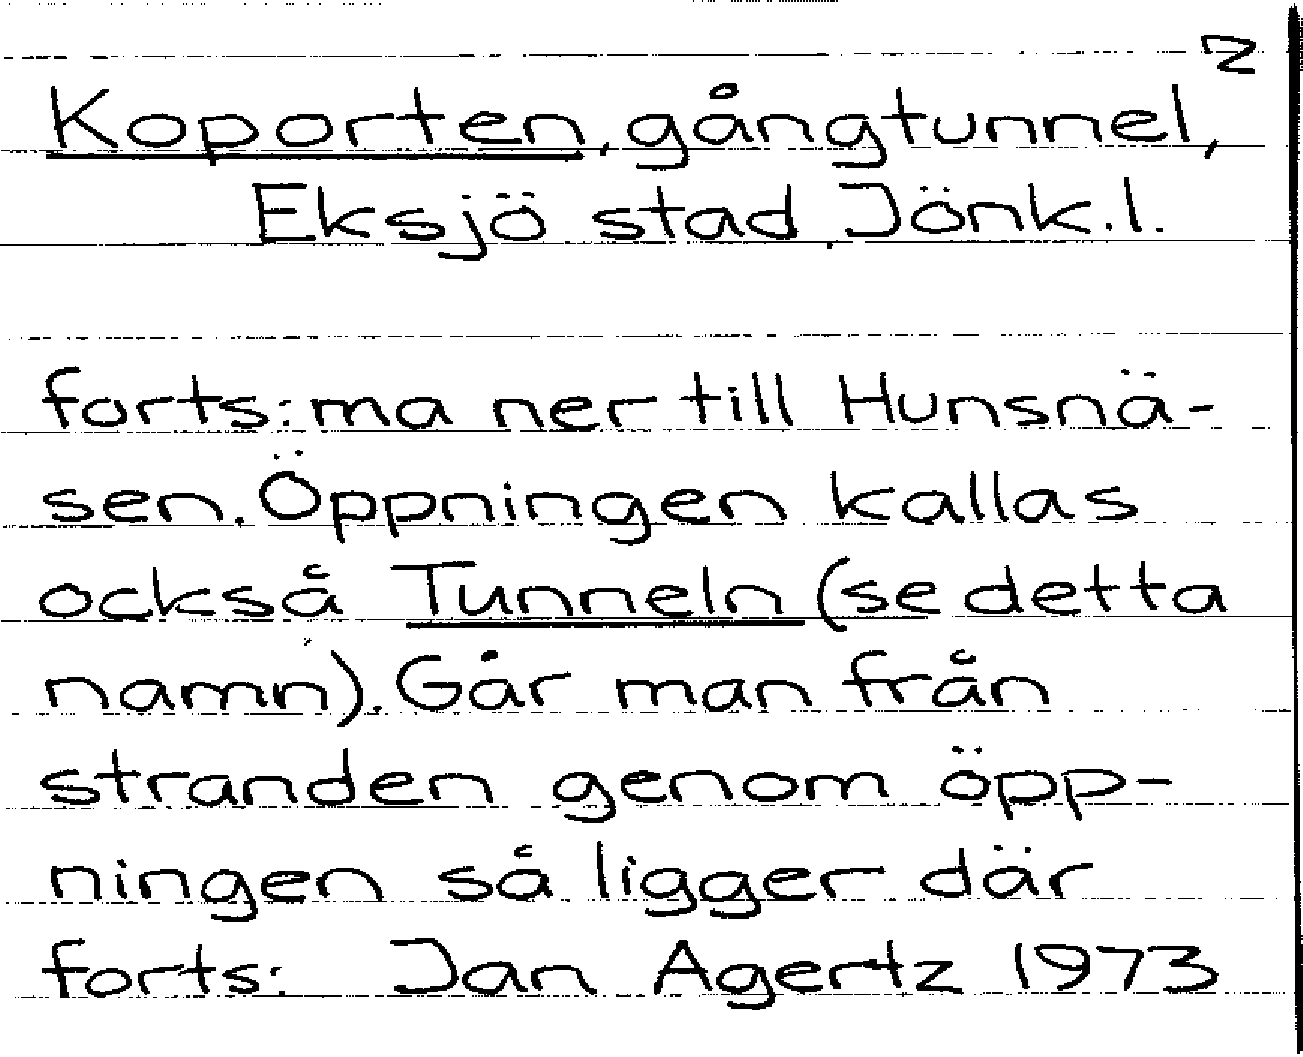 2
Koporten, gångtunnel,
Eksjö stad, Jönk.l.
forts: ma ner till Hunsnä-
sen. Öppningen kallas
också Tunneln (se detta
namn). Går man från
stranden genom öpp-
ningen så ligger där
forts: Jan Agertz 1973